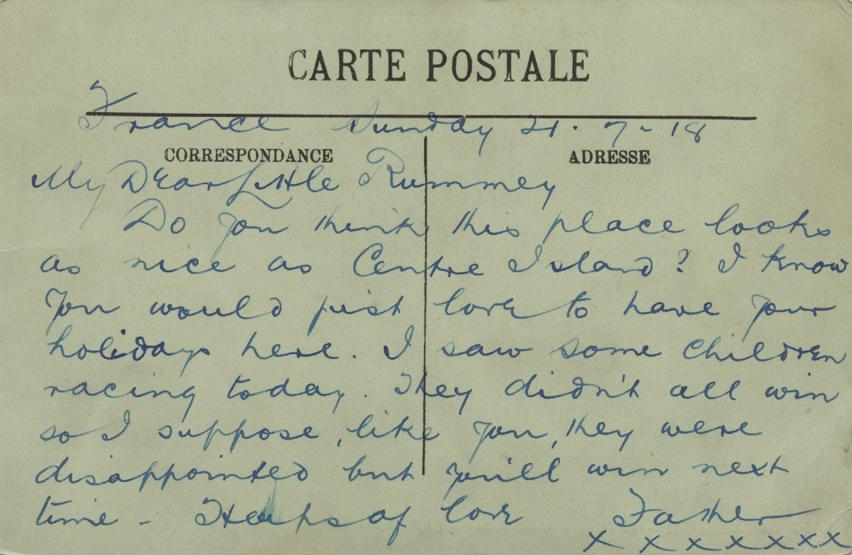 CARTE POSTALE
France Sunday 21.7-18
CORRESPONDANCE
ADRESSE
My Dear Little Rummey
Do you think this place looks
as nice as Centre Island? I know
you would just love to have your
holidays here. I saw some children
racing today. They didn't all win
so I suppose, like you, they were
disappointed but will win next
time - Heaps of love Father
x x x x x x x x